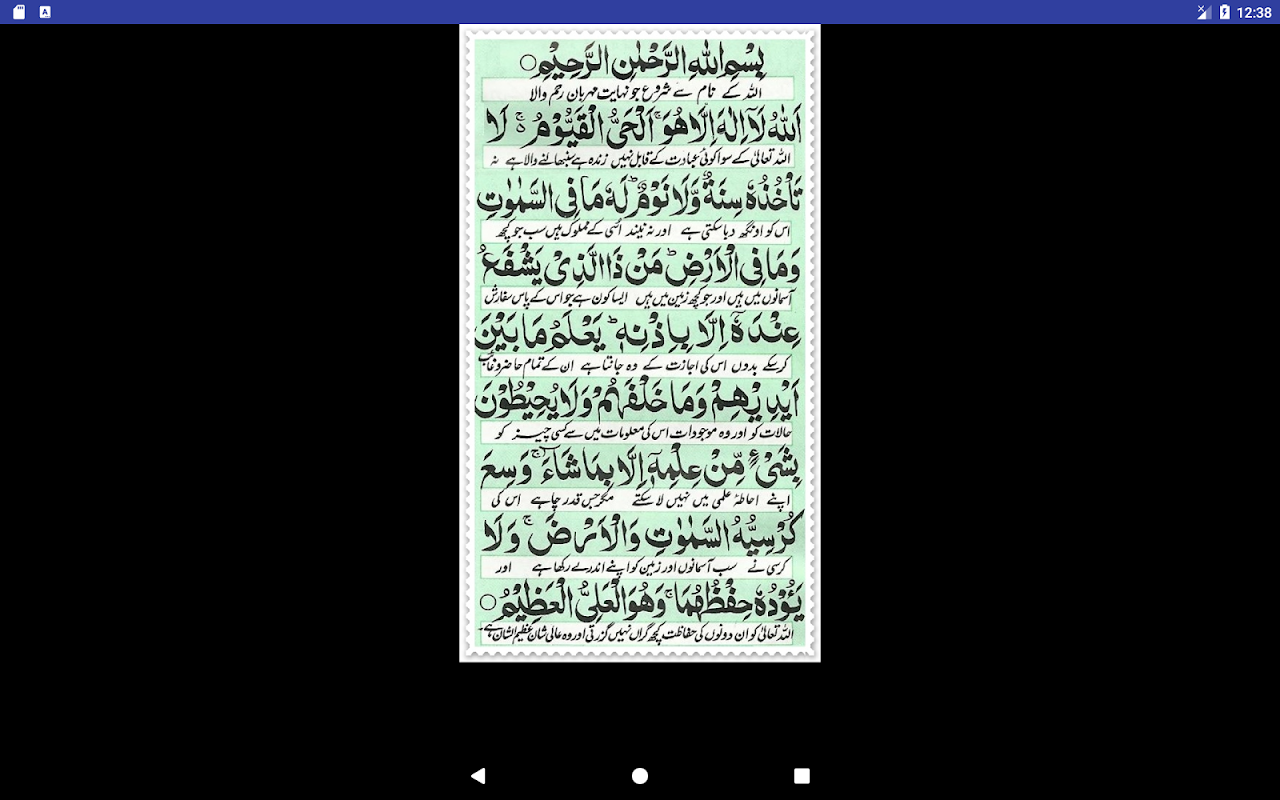 12:38
بِسْمِ اللهِ الرَّحْمٰنِ الرَّحِيْمِ ○
اللہ کے نام سے شروع جو نہایت مہربان رحم والا
اَللهُ لَآ اِلٰهَ اِلَّا هُوَ ۚ اَلْحَىُّ الْقَيُّوْمُ ۚ لَا
اللہ تعالیٰ کے سوا کوئی عبادت کے قابل نہیں زندہ ہے سنبھالنے والا ہے نہ
تَاْخُذُهٗ سِنَةٌ وَّلَا نَوْمٌ ؕ لَهٗ مَا فِى السَّمٰوٰتِ
اس کو اونگھ دبا سکتی ہے اور نہ نیند اسی کے مملوک ہیں سب جو کچھ
وَمَا فِى الْاَرْضِ ؕ مَنْ ذَا الَّذِىْ يَشْفَعُ
آسمانوں میں ہیں اور جو کچھ زمین میں ہیں ایسا کون ہے جو اس کے پاس سفارش
عِنْدَهٗٓ اِلَّا بِاِذْنِهٖ ؕ يَعْلَمُ مَا بَيْنَ
کرسکے بدوں اس کی اجازت کے وہ جانتا ہے ان کے تمام حاضر و غائب
اَيْدِيْهِمْ وَمَا خَلْفَهُمْ وَلَا يُحِيْطُوْنَ
حالات کو اور وہ موجودات اس کی معلومات میں سے کسی چیز کو
بِشَىْءٍ مِّنْ عِلْمِهٖٓ اِلَّا بِمَا شَآءَ ۚ وَسِعَ
اپنے احاطۂ علمی میں نہیں لا سکتے مگر جس قدر چاہے اس کی
كُرْسِيُّهُ السَّمٰوٰتِ وَالْاَرْضَ ۚ وَلَا
کرسی نے سب آسمانوں اور زمین کو اپنے اندر لے رکھا ہے اور
يَـُٔوْدُهٗ حِفْظُهُمَا ۚ وَهُوَ الْعَلِىُّ الْعَظِيْمُ ○
اللہ تعالیٰ کو ان دونوں کی حفاظت کچھ گراں نہیں گزرتی اور وہ عالی شان عظیم الشان ہے۔